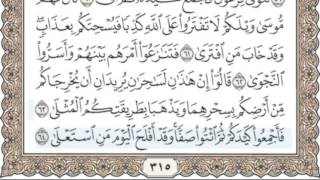 مُّوسَىٰ وَيْلَكُمْ لَا تَفْتَرُوا۟ عَلَى ٱللَّهِ كَذِبًا فَيُسْحِتَكُم بِعَذَابٍۖ
وَقَدْ خَابَ مَنِ ٱفْتَرَىٰ ٦١ فَتَنَٰزَعُوٓا۟ أَمْرَهُم بَيْنَهُمْ وَأَسَرُّوا۟
ٱلنَّجْوَىٰ ٦٢ قَالُوٓا۟ إِنْ هَٰذَٰنِ لَسَٰحِرَٰنِ يُرِيدَانِ أَن يُخْرِجَاكُم
مِّنْ أَرْضِكُم بِسِحْرِهِمَا وَيَذْهَبَا بِطَرِيقَتِكُمُ ٱلْمُثْلَىٰ ٦٣
فَأَجْمِعُوا۟ كَيْدَكُمْ ثُمَّ ٱئْتُوا۟ صَفًّاۚ وَقَدْ أَفْلَحَ ٱلْيَوْمَ مَنِ ٱسْتَعْلَىٰ ٦٤
٣١٥